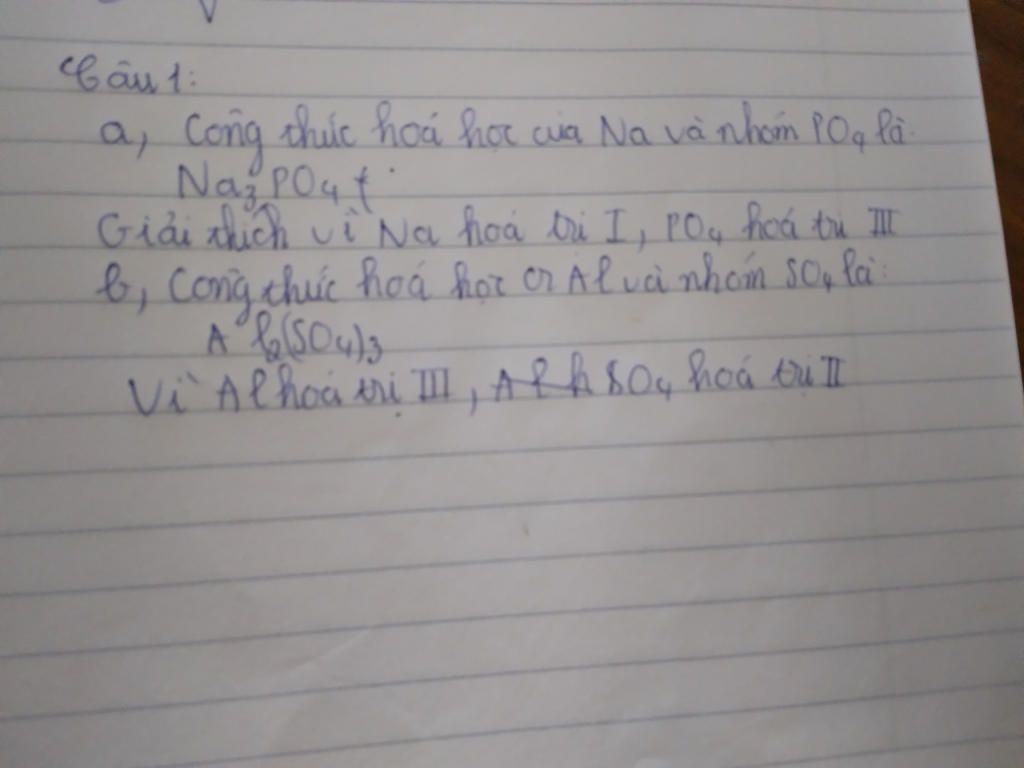 Câu 1:
a, Công thức hoá học của Na và nhóm PO4 là:
Na3PO4
Giải thích vì Na hoá trị I, PO4 hoá trị III
b, Công thức hoá học of Al và nhóm SO4 là:
Al2(SO4)3
Vì Al hoá trị III, Al h SO4 hoá trị II